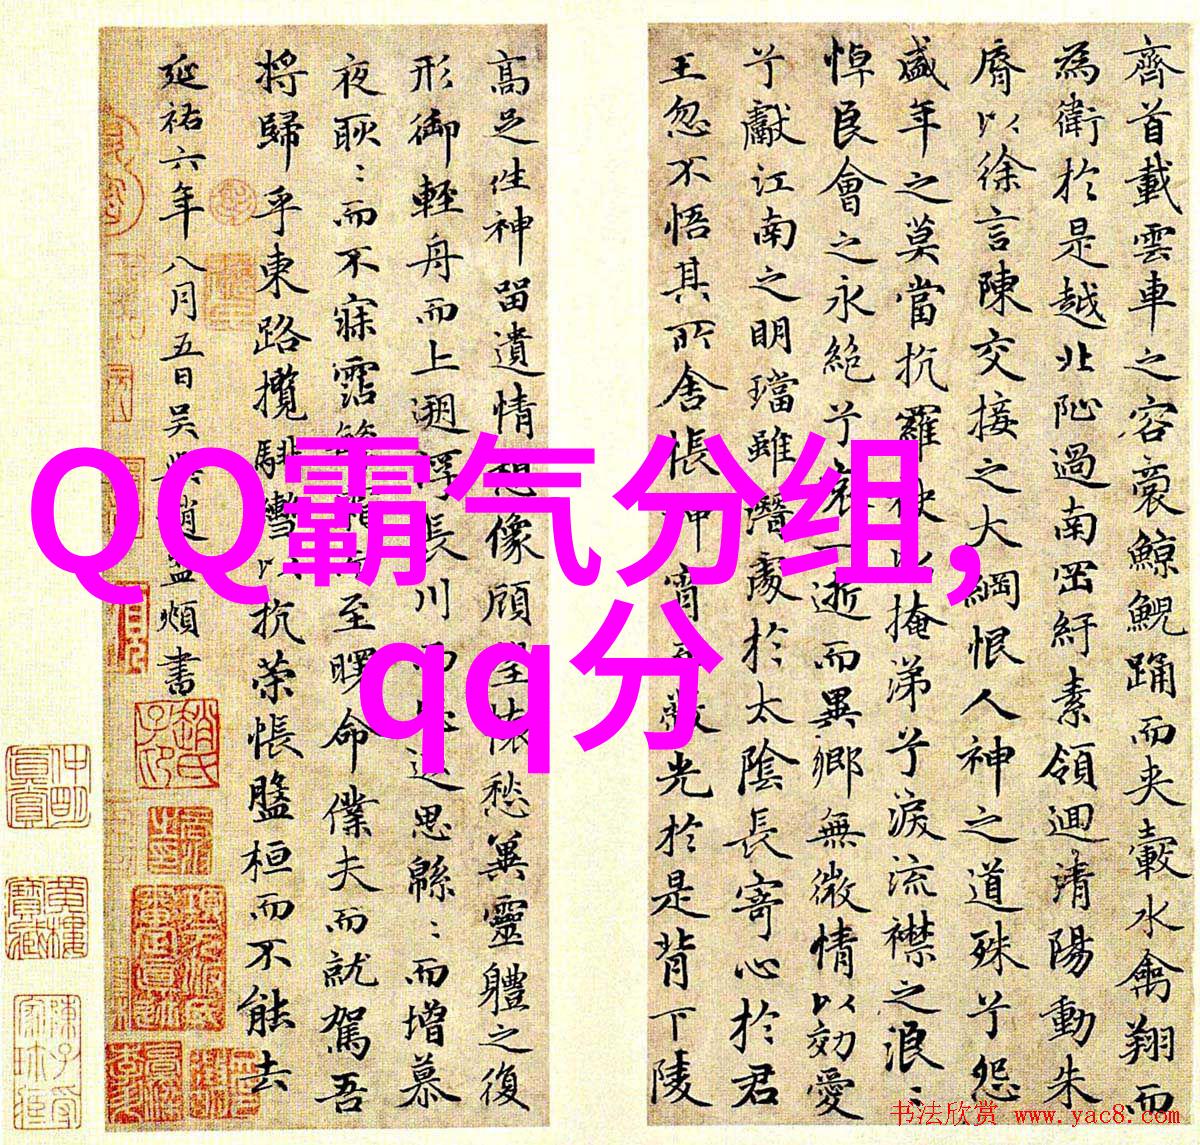 QQ霸气分组,
qq分
齊首載雲車之容裔鯨鯢踊而夾轂水禽翔而
為衛於是越北沚過南岡紆素領迴清陽動朱
脣以徐言陳交接之大綱恨人神之道殊兮怨
盛年之莫當抗羅袂以掩涕兮淚流襟之浪:
悼良會之永絕兮哀一逝而異鄉無微情以効愛
兮獻江南之明璫雖潛處於太陰長寄心於君
王忽不悟其所舍悵神宵而蔽光於是背下陵
高足往神留遺情想像顧望懷愁冀靈體之復
形御輕舟而上遡浮長川而忘返思緜:而增慕
夜耿:而不寐霑繁霜而至曙命僕夫而就駕吾
將歸乎東路攬騑轡以抗策悵盤桓而不能去
延祐六年八月五日吳興趙孟頫書
书法欣赏 www.yac8.com